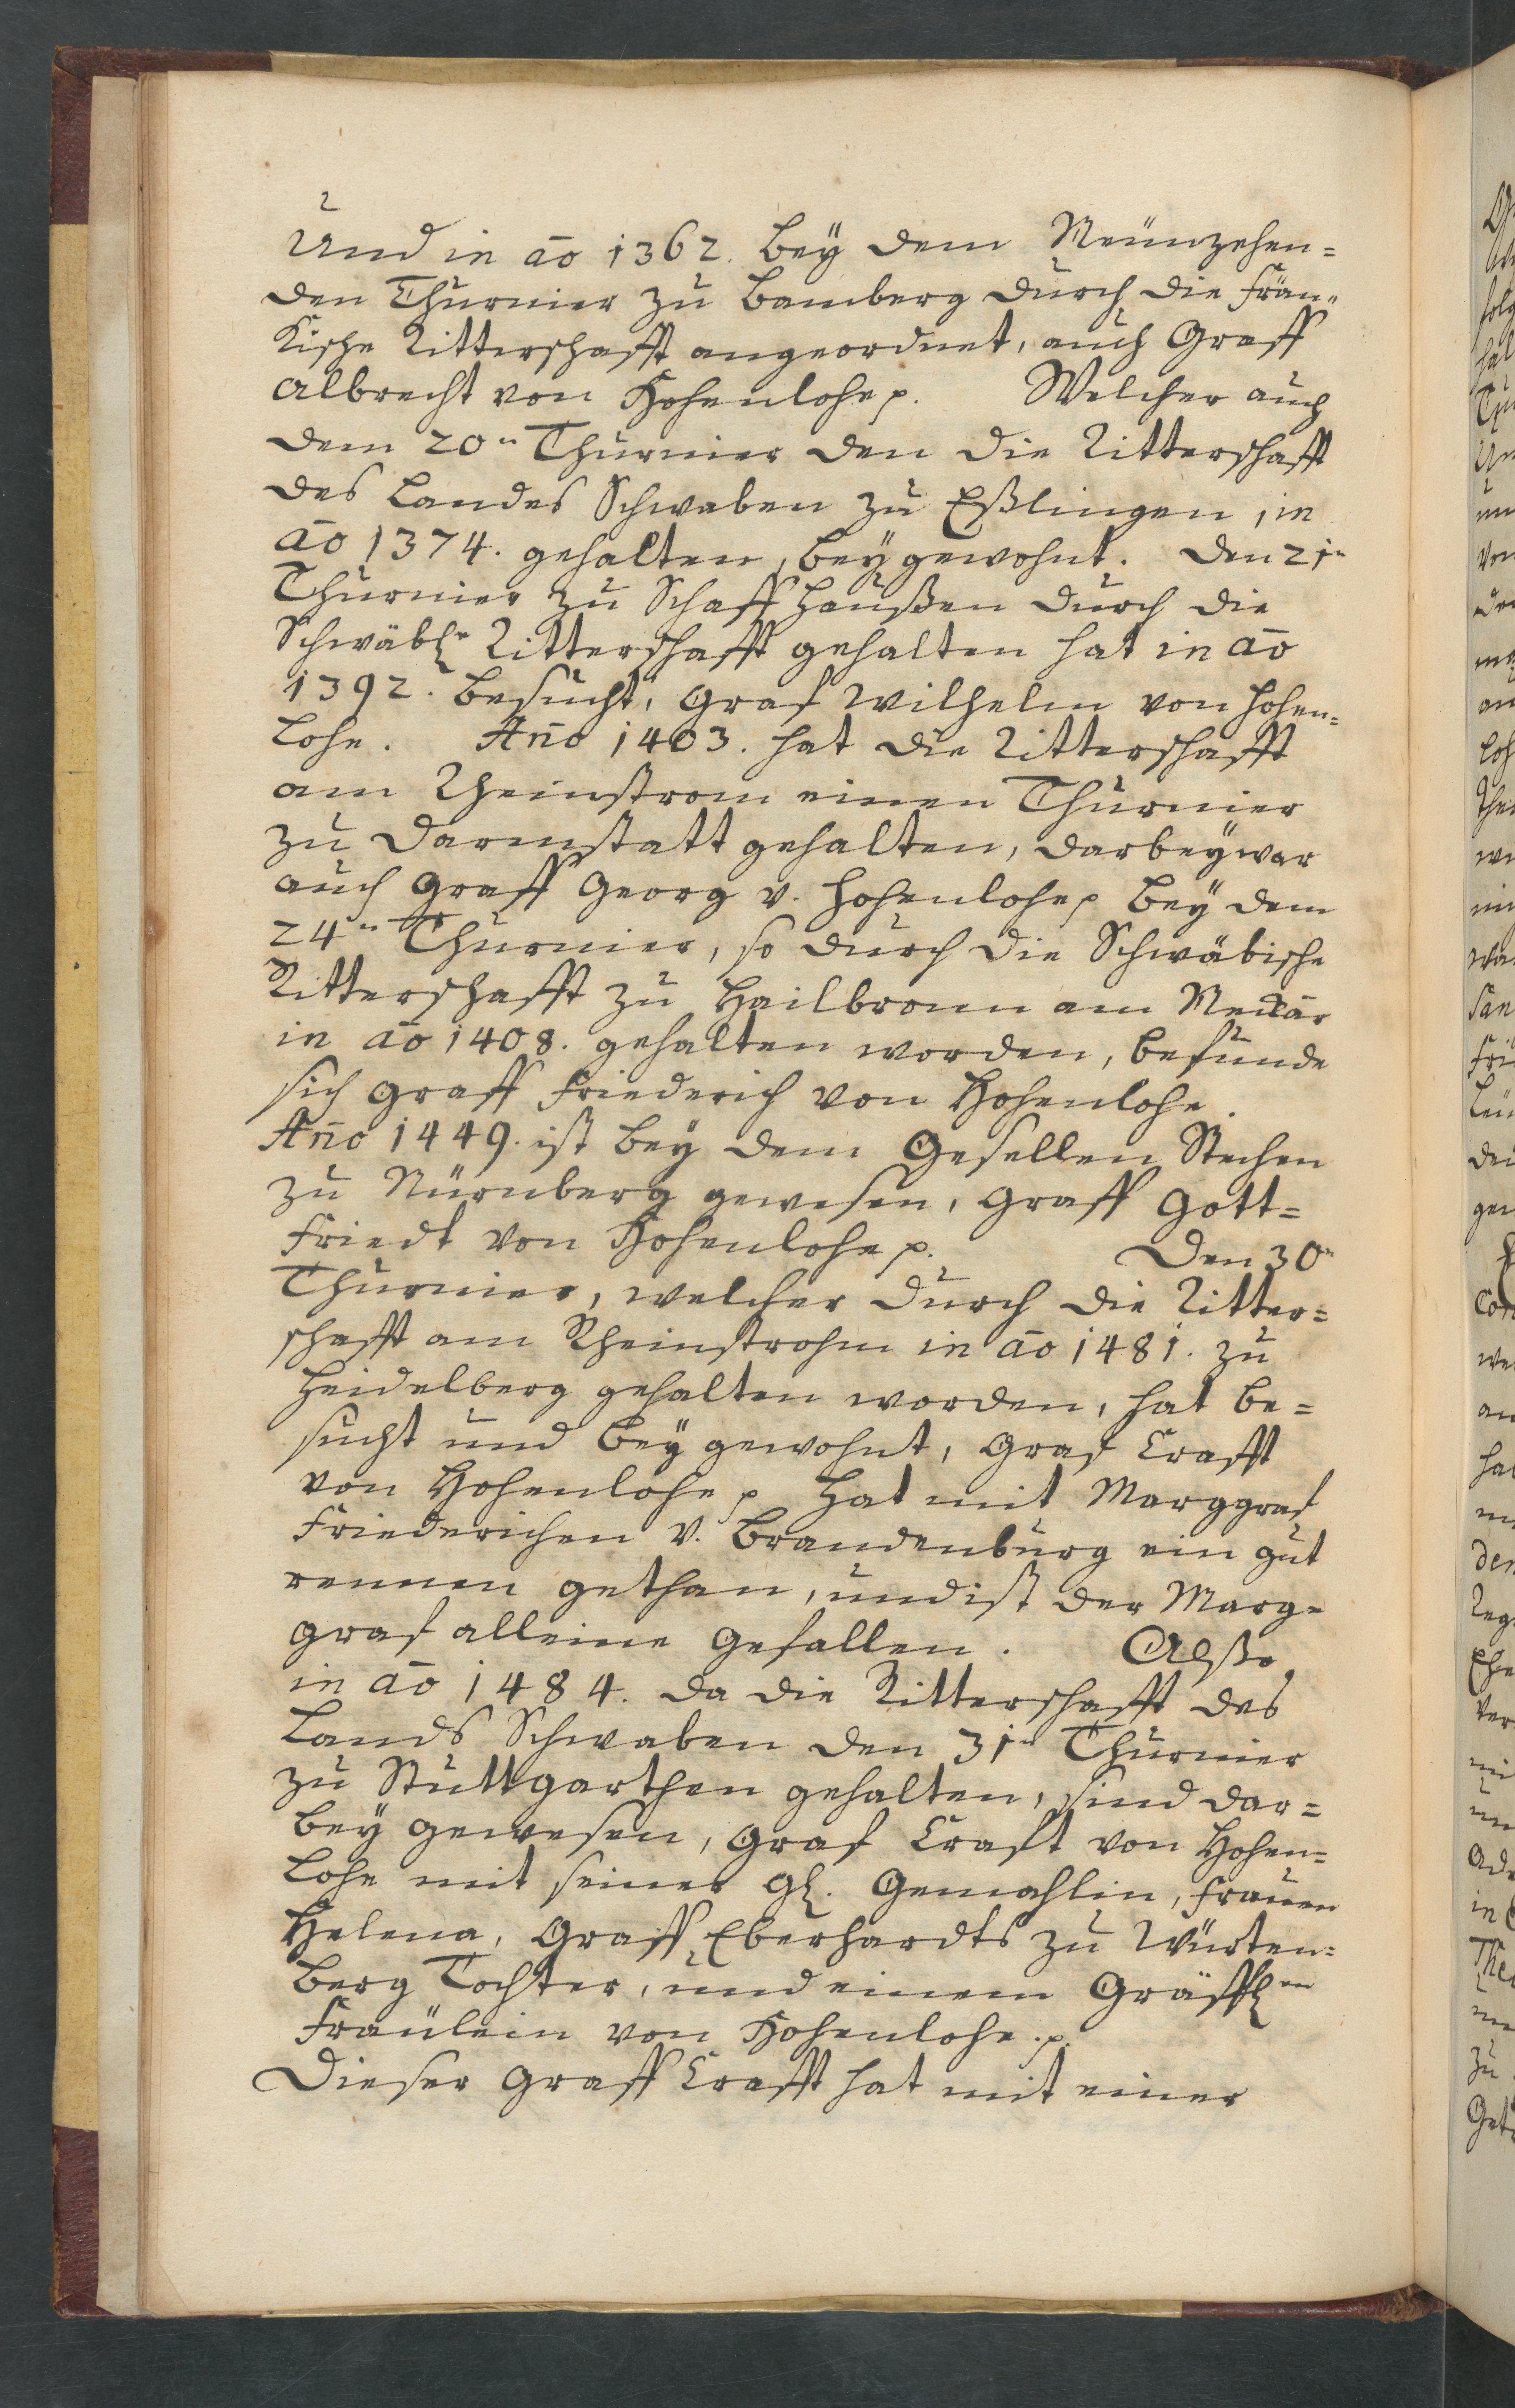 Und in aō 1362. bey dem Neünzehen=
den Thurnier zu Bamberg durch die Frän=
Kische Ritterschafft angeordnet, auch Graff
Albrecht von Hohenlohe p. Welcher auch
dem 20n Thurnier den die Ritterschafft
des Landes Schwaben zu Eßlingen, in
aō 1374. gehalten, beÿgewohnt. Den 21n
Thurnier zu Schaffhaußen durch die
Schwäbl Ritterschafft gehalten hat in aō
1392. besucht, Graf Wilhelm von Hohen=
Lohe. Año 1403. hat die Ritterschafft
am Rheinstrom einen Thurnier
zu Darmstatt gehalten, darbeÿ war
auch Graff Georg v. Hohenlohe p beÿ dem
24n Thurnier, so durch die Schwäbische
Ritterschafft zu Hailbronn am Neckar
in aō 1408. gehalten worden, befunde
sich Graff Friederich von Hohenlohe.
Año 1449. ist beÿ dem Gesellen Stechen
zu Nürnberg gewesen, Graff Gott=
Friedt von Hohenlohe p. Den 30n
Thurnier, welcher durch die Ritter=
schafft am Rheinstrohm in aō 1481. zu
Heidelberg gehalten worden, hat be=
sucht und beÿ gewohnt, Graf Crafft
von Hohenlohe p hat mit Marggraf
Friederichen v. Brandenburg ein gut
rennen gethan, und ist der Marg=
graf alleine gefallen. Alßo
in aō 1484. da die Ritterschafft des
Lands Schwaben den 31n Thurnier
zu Stuttgarthen gehalten, sind dar=
beÿ gewesen, Graf Craft von Hohen=
Lohe mit seiner gl. Gemahlin, Frauen
Helena, Graff Eberhardts zu Würten=
berg Tochter, und einem Gräffl.n
Fraülein von Hohenlohe. p.
Dieser Graff Crafft hat mit einer